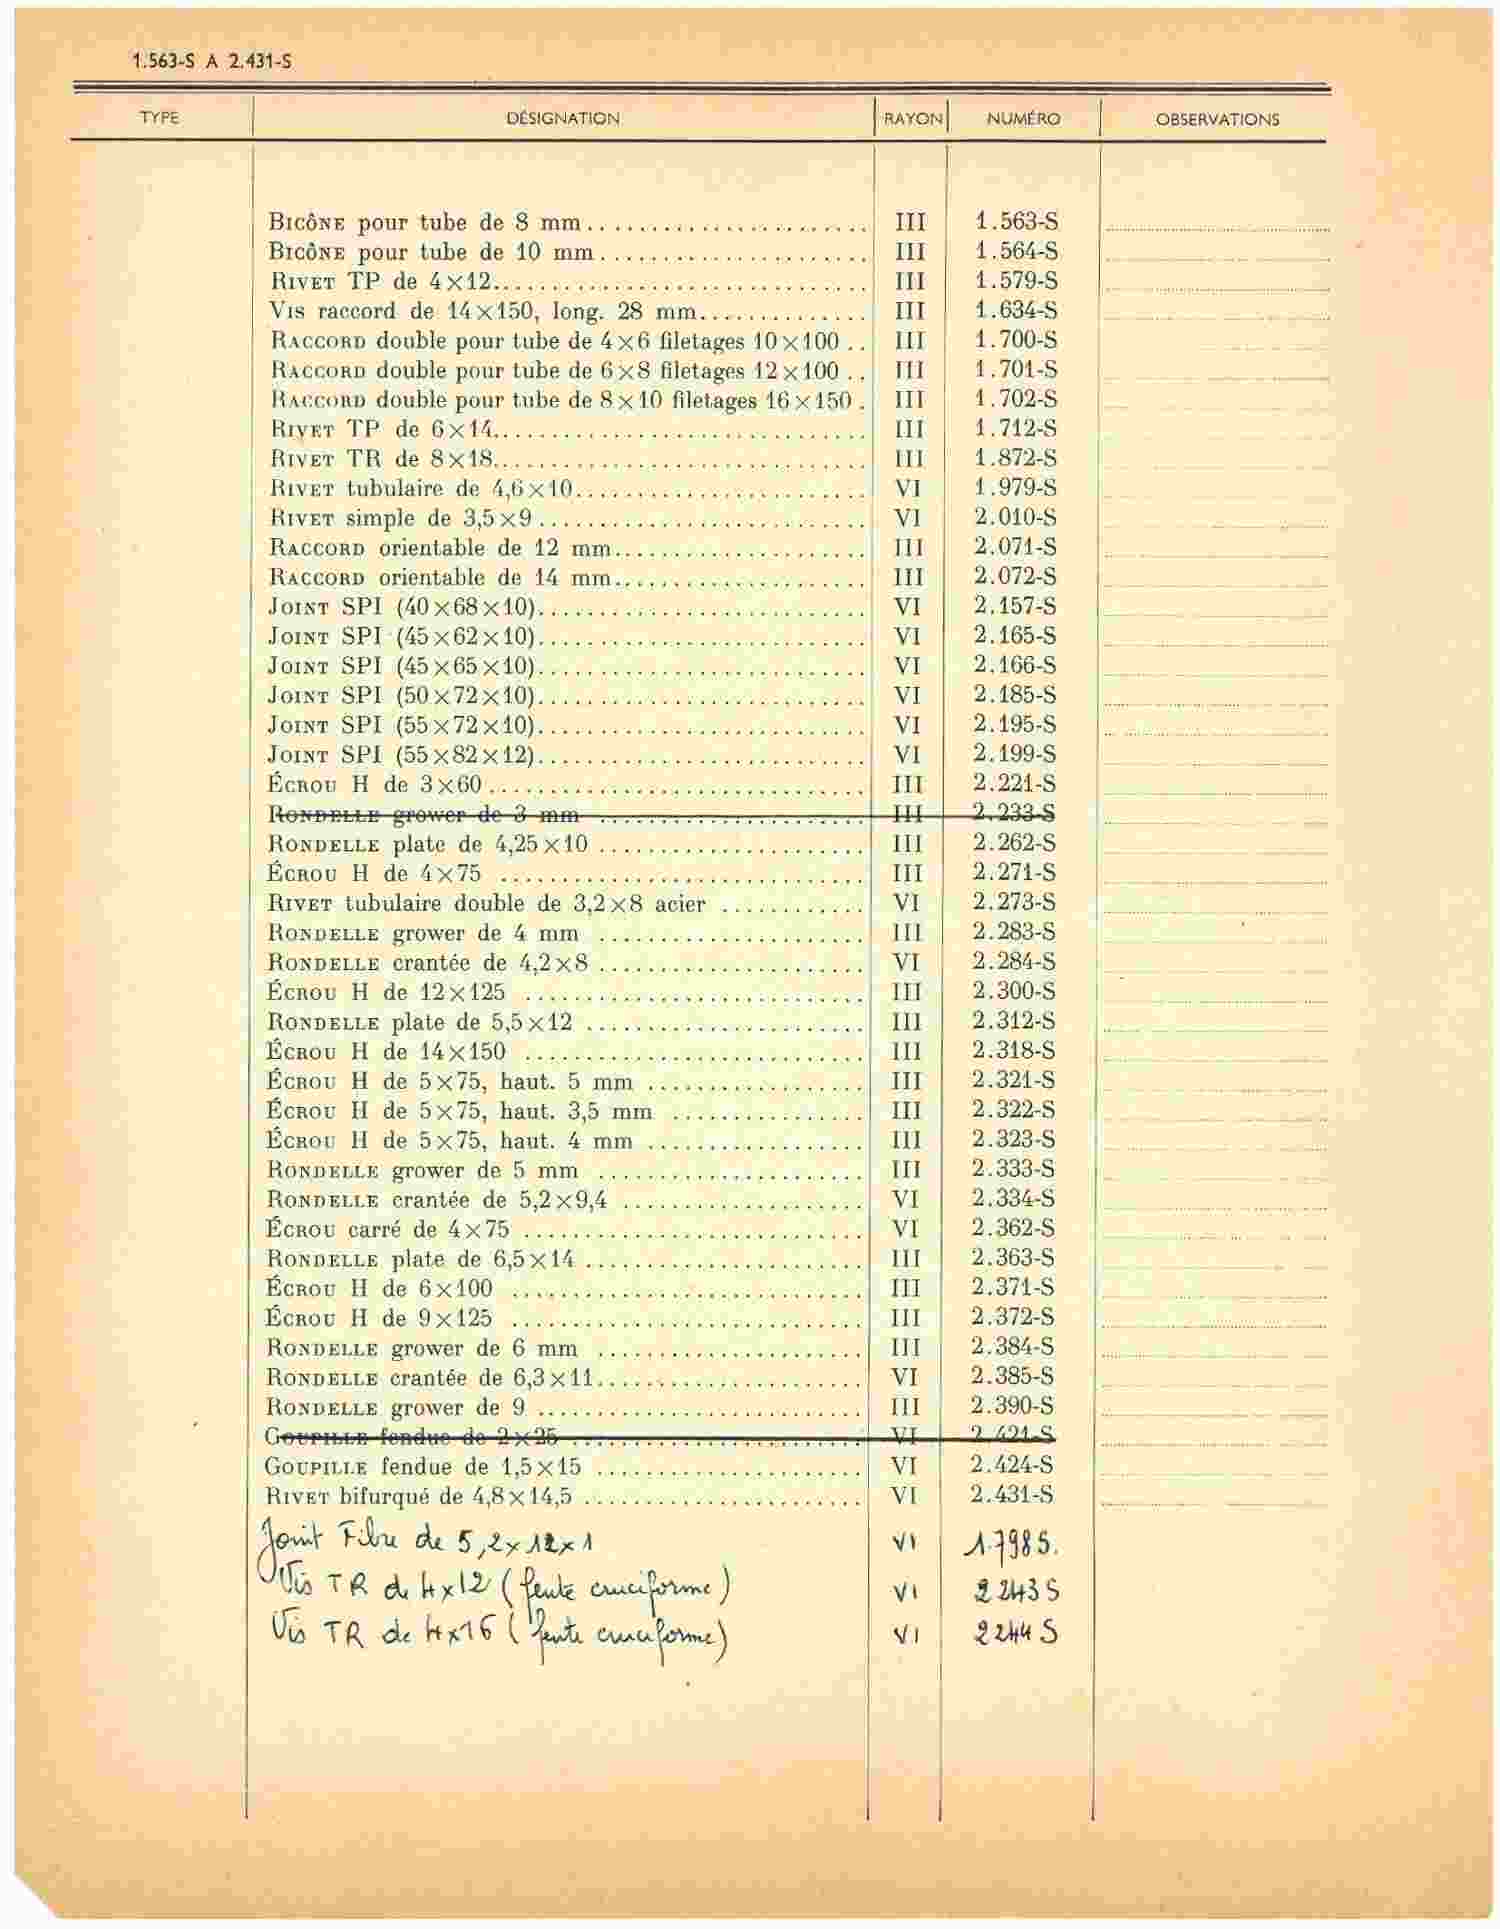 1.563-S A 2.431-S
TYPE DÉSIGNATION RAYON NUMÉRO OBSERVATIONS
BICÔNE pour tube de 8 mm III 1.563-S
BICÔNE pour tube de 10 mm III 1.564-S
RIVET TP de 4×12 III 1.579-S
VIS raccord de 14×150, long. 28 mm III 1.634-S
RACCORD double pour tube de 4×6 filetages 10×100 III 1.700-S
RACCORD double pour tube de 6×8 filetages 12×100 III 1.701-S
RACCORD double pour tube de 8×10 filetages 16×150 III 1.702-S
RIVET TP de 6×14 III 1.712-S
RIVET TR de 8×18 III 1.872-S
RIVET tubulaire de 4,6×10 VI 1.979-S
RIVET simple de 3,5×9 VI 2.010-S
RACCORD orientable de 12 mm III 2.071-S
RACCORD orientable de 14 mm III 2.072-S
JOINT SPI (40×68×10) VI 2.157-S
JOINT SPI (45×62×10) VI 2.165-S
JOINT SPI (45×65×10) VI 2.166-S
JOINT SPI (50×72×10) VI 2.185-S
JOINT SPI (55×72×10) VI 2.195-S
JOINT SPI (55×82×12) VI 2.199-S
ÉCROU H de 3×60 III 2.221-S
RONDELLE grower de 3 mm III 2.233-S
RONDELLE plate de 4,25×10 III 2.262-S
ÉCROU H de 4×75 III 2.271-S
RIVET tubulaire double de 3,2×8 acier VI 2.273-S
RONDELLE grower de 4 mm III 2.283-S
RONDELLE crantée de 4,2×8 VI 2.284-S
ÉCROU H de 12×125 III 2.300-S
RONDELLE plate de 5,5×12 III 2.312-S
ÉCROU H de 14×150 III 2.318-S
ÉCROU H de 5×75, haut. 5 mm III 2.321-S
ÉCROU H de 5×75, haut. 3,5 mm III 2.322-S
ÉCROU H de 5×75, haut. 4 mm III 2.323-S
RONDELLE grower de 5 mm III 2.333-S
RONDELLE crantée de 5,2×9,4 VI 2.334-S
ÉCROU carré de 4×75 VI 2.362-S
RONDELLE plate de 6,5×14 III 2.363-S
ÉCROU H de 6×100 III 2.371-S
ÉCROU H de 9×125 III 2.372-S
RONDELLE grower de 6 mm III 2.384-S
RONDELLE crantée de 6,3×11 VI 2.385-S
RONDELLE grower de 9 III 2.390-S
GOUPILLE fendue de 2×25 VI 2.421-S
GOUPILLE fendue de 1,5×15 VI 2.424-S
RIVET bifurqué de 4,8×14,5 VI 2.431-S
Joint Fibre de 5,2×12×1 VI 1.798S.
Vis TR de 4×12 (fente cruciforme) VI 2243 S
Vis TR de 4×16 (fente cruciforme) VI 2244 S